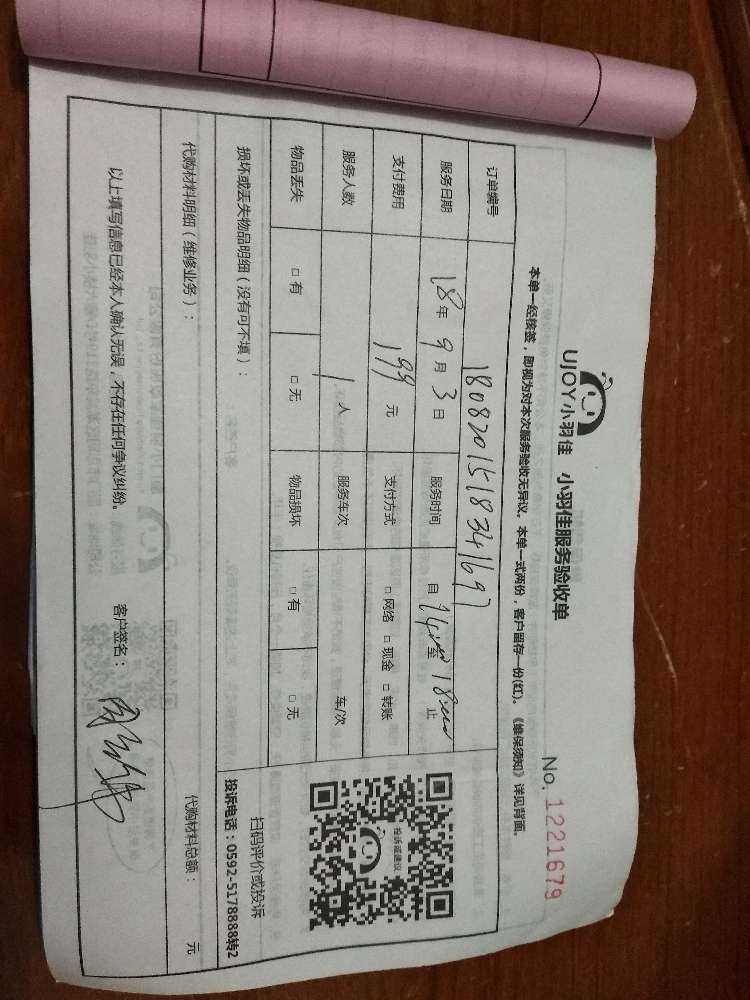 UJOY小羽佳 小羽佳服务验收单
No. 1221679
本单一经核签，即视为对本次服务验收无异议。本单一式两份，客户留存一份(红)。《维保须知》详见背面。
订单编号 1808201518341697
服务日期 18年 9月 3日 服务时间 自 14:00 至 18:00 止
支付费用 199 元 支付方式 □ 网络 □ 现金 □ 转账
服务人数 1 人 服务车次 车/次
物品丢失 □ 有 □ 无 物品损坏 □ 有 □ 无
投诉或建议
扫码评价或投诉
投诉电话：0592-5178888转2
损坏或丢失物品明细（没有可不填）：
代购材料明细（维修业务）： 代购材料总额： 元
以上填写信息已经本人确认无误，不存在任何争议纠纷。 客户签名：